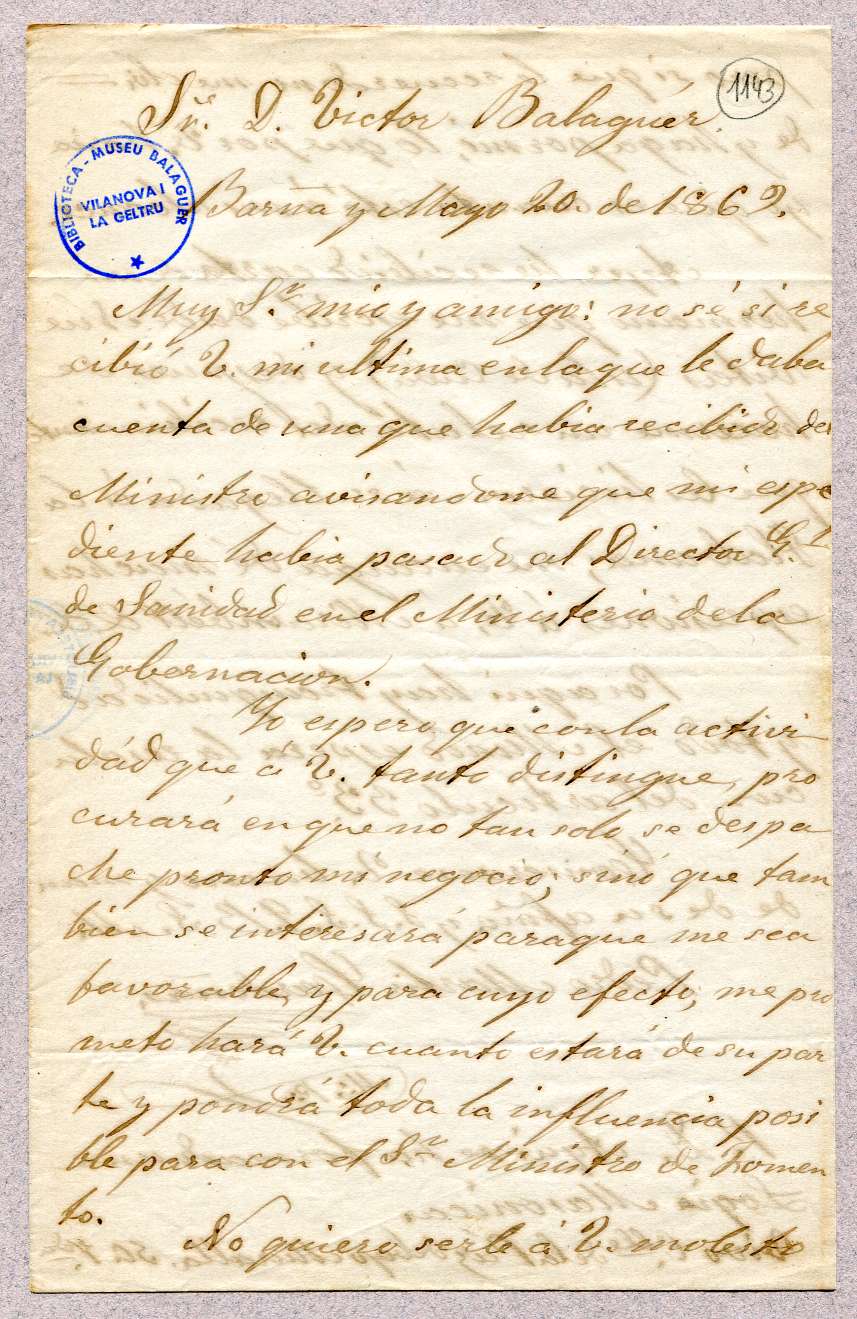 1143
Sr. D. Victor Balaguér.
BIBLIOTECA - MUSEU BALAGUER
VILANOVA I
LA GELTRU
Barna y Mayo 20. de 1869.
Muy Sr. mio y amigo: no sé si re
cibió V. mi ultima en la que le daba
cuenta de una que habia recibido del
Ministro avisandome que mi espe
diente habia pasado al Director Gl.
de Sanidad en el Ministerio de la
Gobernacion.
Yo espero que con la activi
dád que á V. tanto distingue, pro
curará en que no tan solo se despa
che pronto mi negocio; sinó que tam
bien se interesará paraque me sea
favorable, y para cuyo efecto, me pro
meto hará V. cuanto estará de su par
te y pondrá toda la influencia posi
ble para con el Sr. Ministro de Fomen
to.
No quiero serle á V. molesto